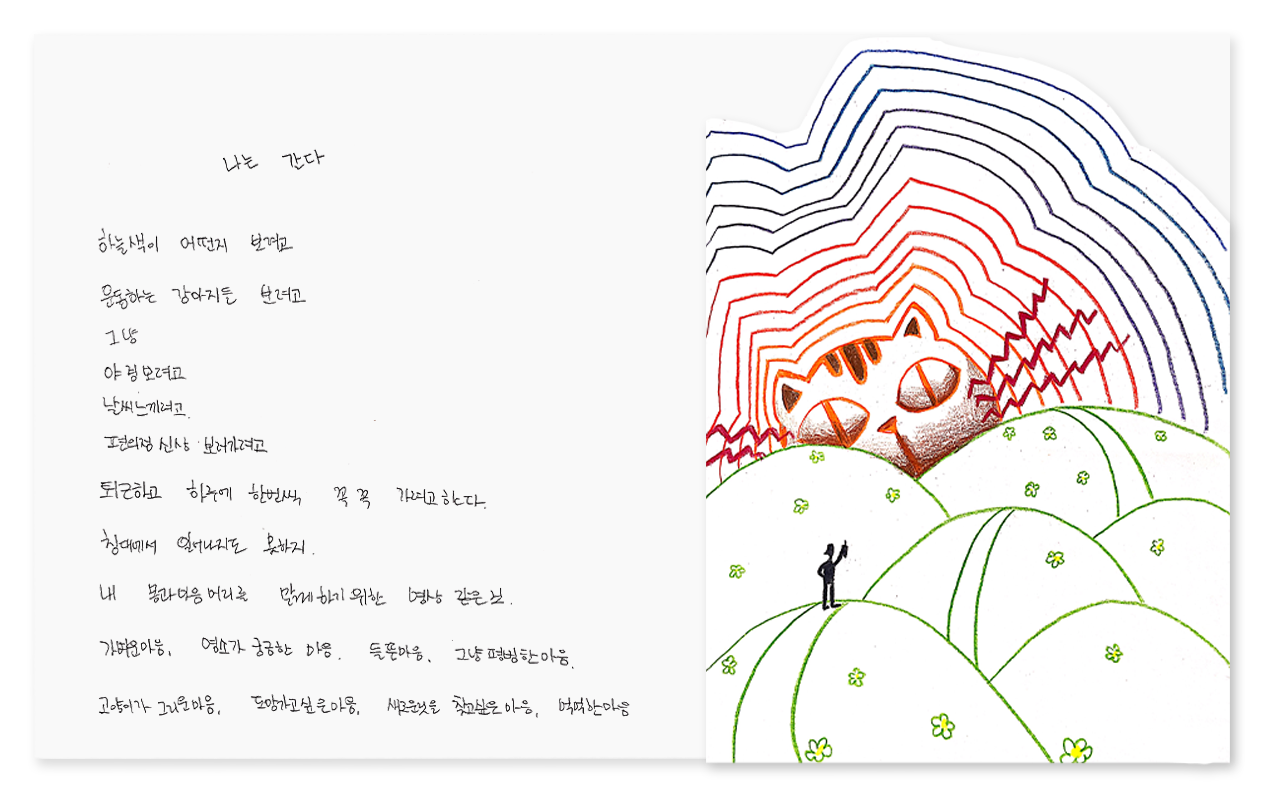 나는 간다
하늘색이 어떤지 보려고
운동하는 강아지들 보려고
그냥
야경보려고
날씨느끼려고.
편의점 신상 보러가려고
퇴근하고 하루에 한번씩 꼭 꼭 가려고 한다.
침대에서 일어나지도 못하지.
내 몸과 마음 머리를 맑게 하기 위한 명상 같은 것.
가벼운마음, 영소가 궁금한 마음. 들뜬마음, 그냥 평범한 마음.
고양이가 그리운마음, 도망가고싶은마음, 새로운것을 찾고싶은 마음, 먹먹한마음